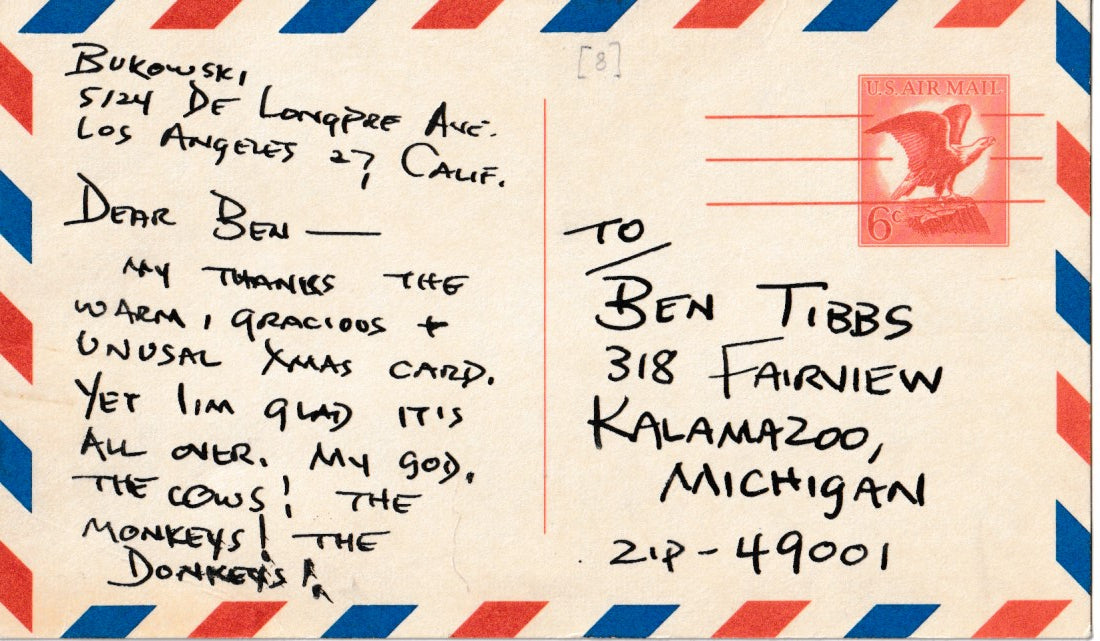 [8]
U.S. AIR MAIL
6c
BUKOWSKI
5124 DE LONGPRE AVE.
LOS ANGELES 27, CALIF.
DEAR BEN —
MY THANKS THE
WARM, GRACIOUS +
UNUSAL XMAS CARD.
YET I'M GLAD IT'S
ALL OVER. MY GOD.
THE COWS! THE
MONKEYS! THE
DONKEYS!
TO
BEN TIBBS
318 FAIRVIEW
KALAMAZOO,
MICHIGAN
ZIP - 49001